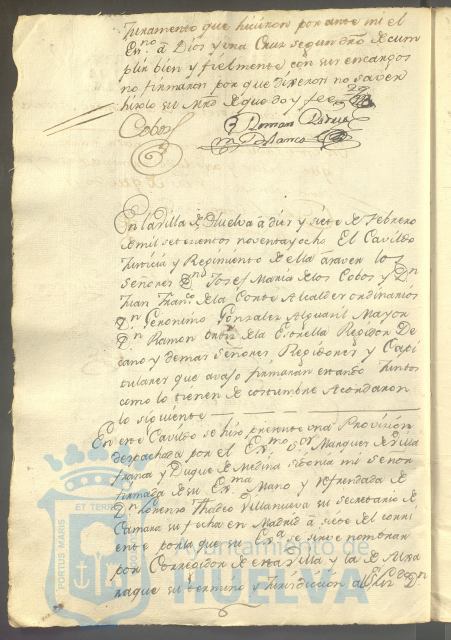 Juramento que hicieron por ante mi el
Esn.no á Dios y una Cruz segun dro de cum
plir bien y fielmente con sus encargos
no firmaron por que dixeron no saver
hizolo su Mrd de que doy fee
Cobos
Roman Garcia
Blanco
En la Villa de Huelva á diez y siete de Febrero
de mil setecientos noventa y ocho El Cavildo
Justicia y Regimiento de ella á saver los
Señores Dn Josef Maria de los Cobos y Dn
Juan Franco de la Corte Alcaldes ordinarios
Dn Geronimo Gonzalez Alguazil Mayor
Dn Ramon Ortiz de la Estrella Regidor De
cano y demas Señores Regidores y Capi
tulares que avajo firmarán estando Juntos
como lo tienen de costumbre Acordaron
lo siguiente
En este Cavildo se hizo presente una Provision
despachada por el Exmo Sor Marques de Villa
franca y Duque de Medina Sidonia mi Señor
firmada de su Exma Mano y refrendada de
Dn Lorenzo Thadeo Villanueva su secretario de
Camara su fecha en Madrid á siete del corri
ente por la que su Exa se sirve nombrar
por Corregidor de esta Villa y la de Alxa
raque su termino y Jurisdiccion al Dn
PORTUS MARIS ET TERRAE
Ayuntamiento de
HUELVA